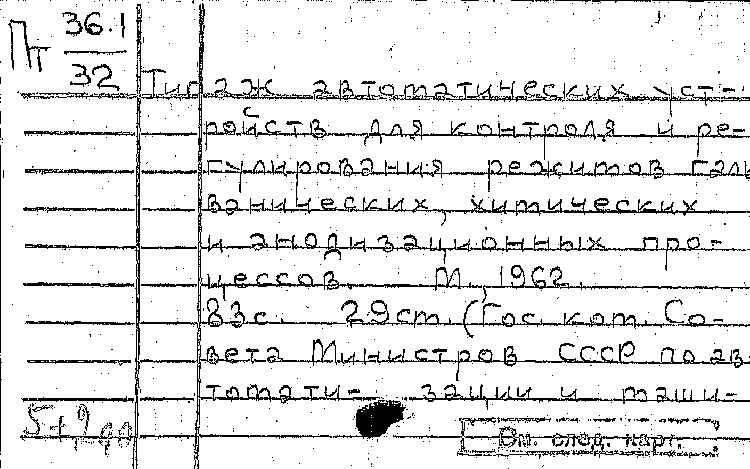 Пт 36.1
32
Типаж автоматических уст-
ройств для контроля и ре-
гулирования режимов галь
ванических, химических
и анодизационных про-
цессов. М., 1962.
83с. 29см. (Гос. ком. Со-
вета Министров СССР по ав
томати- зации и маши-
См. след. карт.